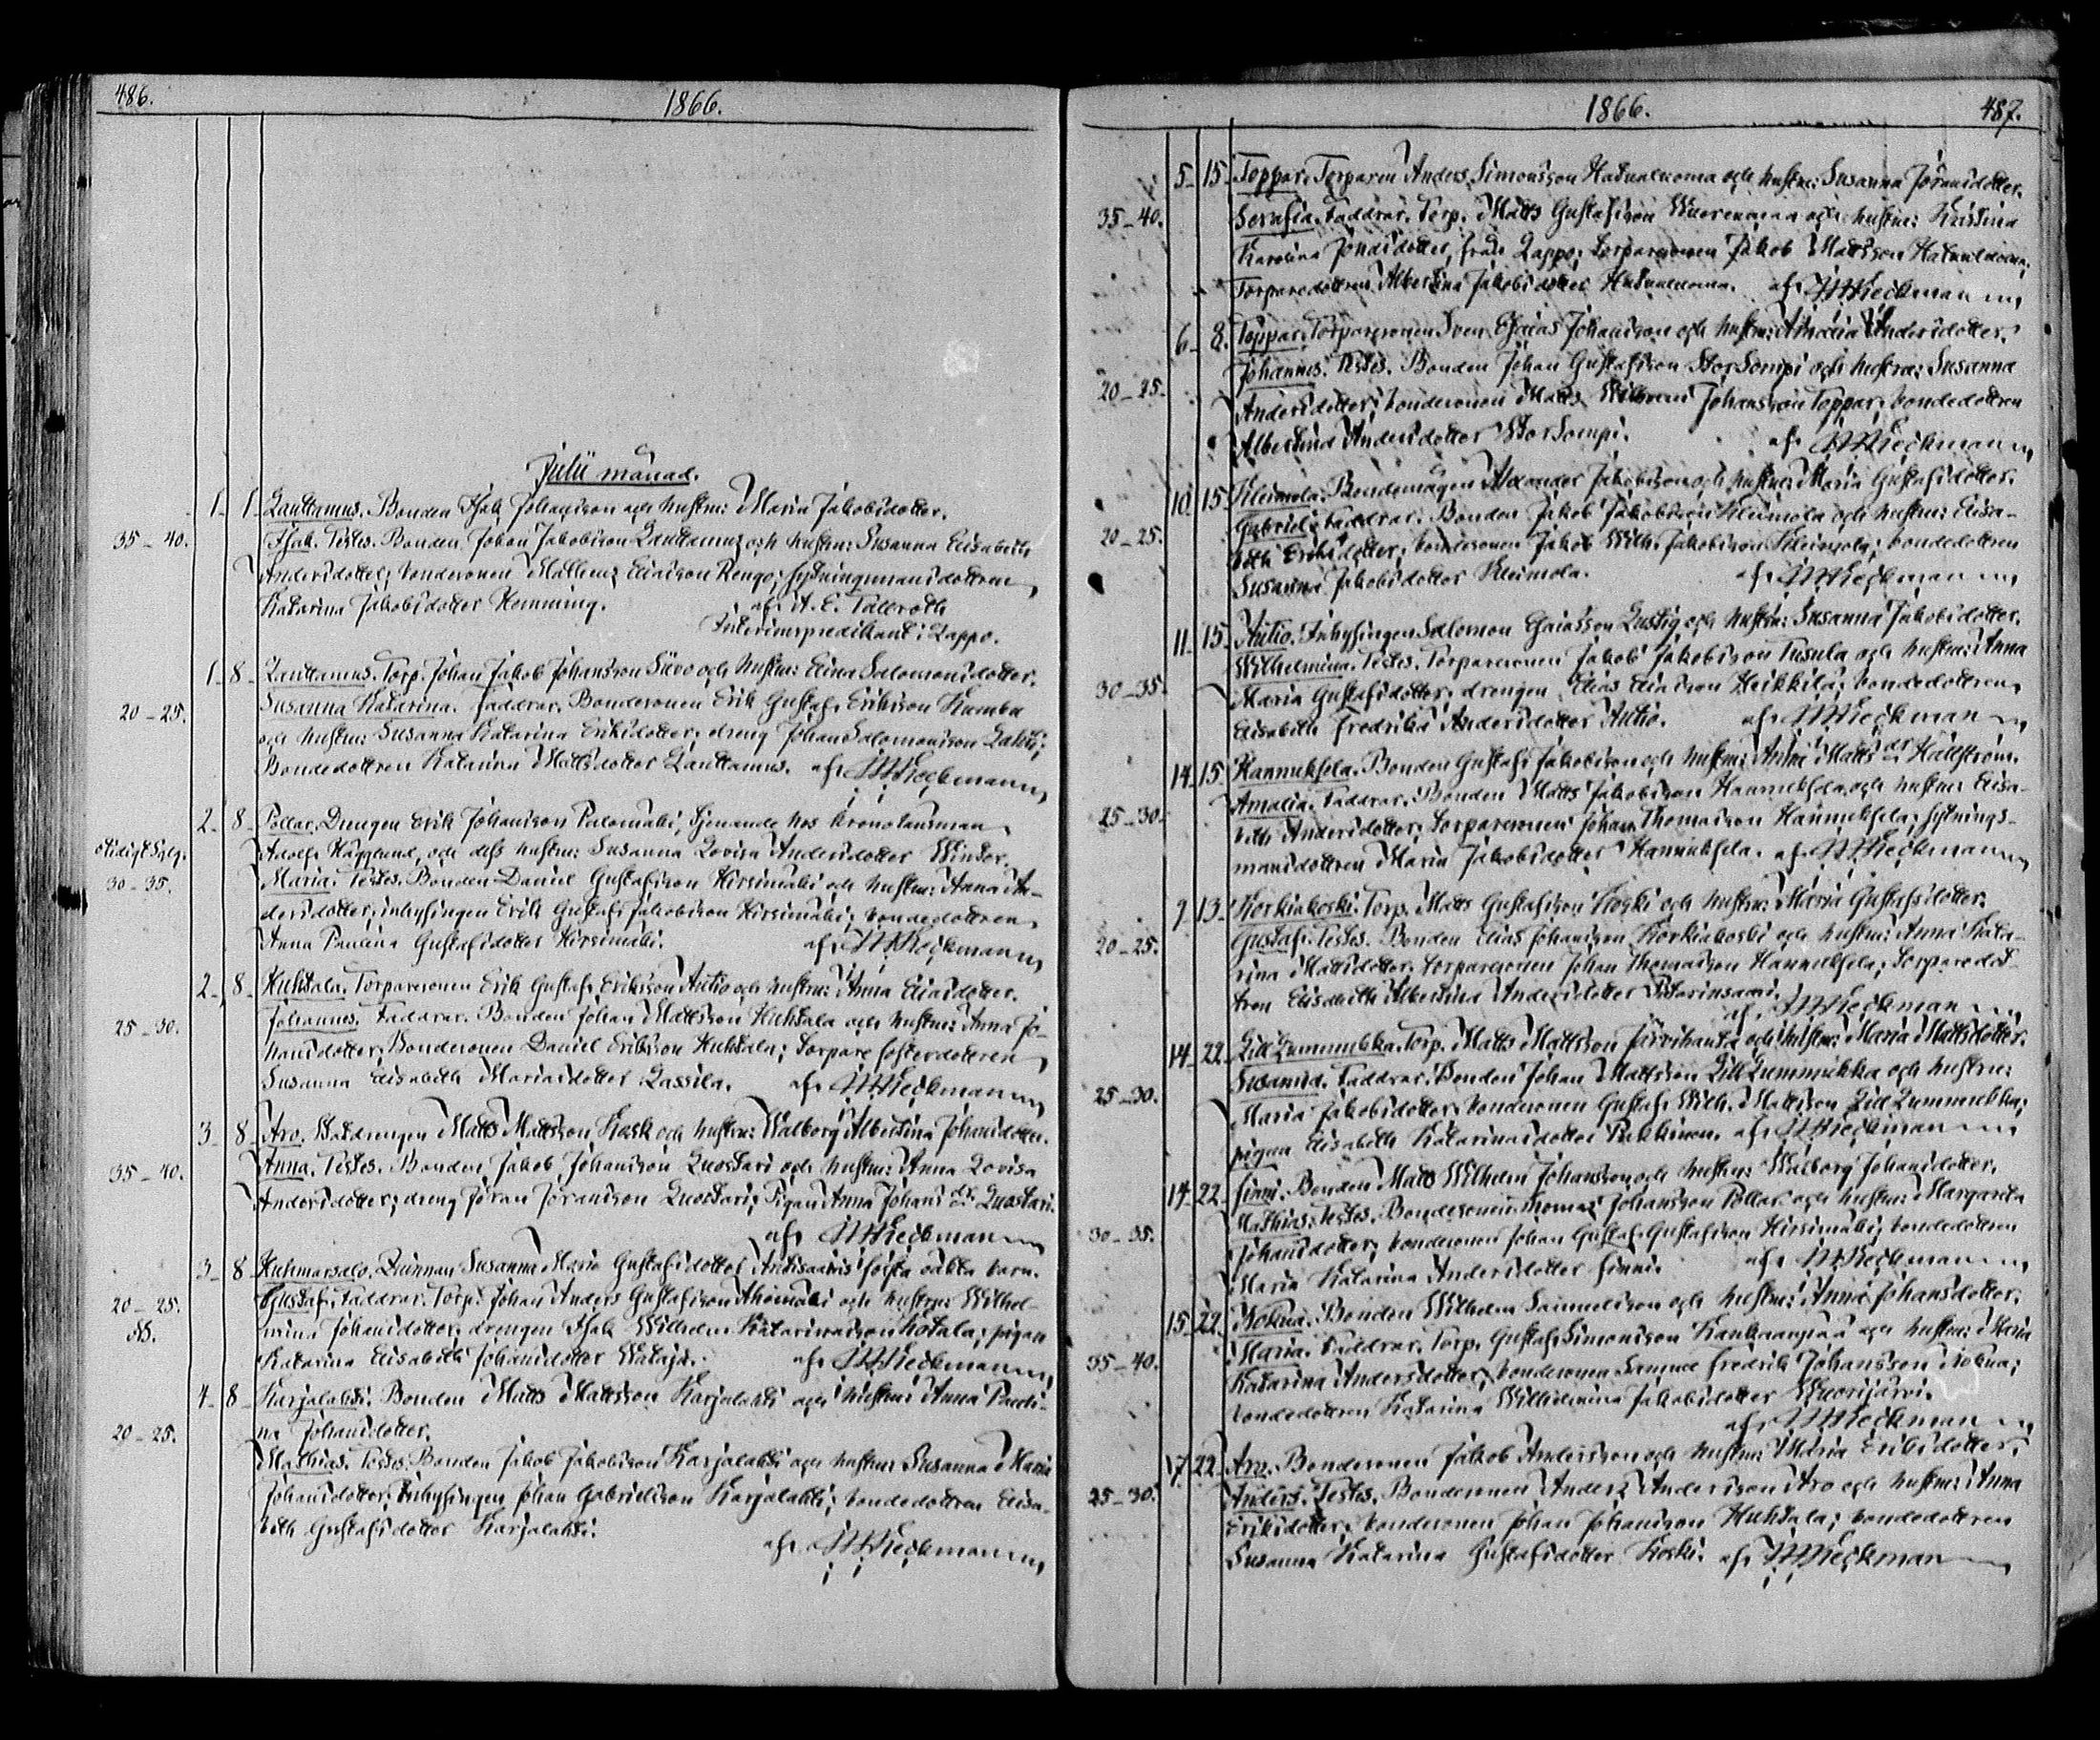 486.
1866.
Julii månad.
1 1 Lauttamus. Bonden Isak Johansson och hustru: Maria Jakobsdotter.
35-40. Isak. Testes. Bonden Johan Jakobsson Lauttamus och hustru: Susanna Elisabeth
Andersdotter; bondesonen Eliasson Rengo; sytningsmansdottren
Katarina Jakobsdotter Hemming. af A. E. Tallroth
Interimspredikant i Lappo.
1 8 Lauttamus. Torp. Johan Jakob Johansson Siivo och hustru: Elina Salomonsdotter.
20-25. Susanna Katarina. Faddrar. Bondesonen Erik Gustaf Eriksson
och hustru: Susanna Katarina Eriksdotter; dreng Johan Salomonsson Lahti;
Bondedottren Katarina Mattsdotter Lauttamus. af
2 8 Pollar. Drengen Erik Johansson Palomäki, tjenande hos Kronolänsman
Adolf Hägglund, och dess hustru: Susanna Lovisa Andersdotter Winter.
30-35. Maria. Testes. Bonden Daniel Gustafsson Hirsimäki och hustru: Anna An-
dersdotter; inhysingen Erik Gustaf Jakobsson Hirsimäki; bondedottren
Anna Paulina Gustafsdotter Hirsimäki. af
2 8 Huhtala. Torparesonen Erik Gustaf Eriksson Autio och hustru: Anna Eliasdotter.
25-30. Johannes. Faddrar. Bonden Johan Mattsson Huhtala och hustru: Anna Jo-
hansdotter; Bondesonen Daniel Eriksson Huhtala; torpare fosterdottren
Susanna Elisabeth Mariasdotter Lassila. af
3 8 Aro. Matts Mattsson Kask och hustru: Walborg Albertina Johansdotter.
35-40. Anna. Testes. Bonden Jakob Johansson Luostari och hustru: Anna Lovisa
Andersdotter; dreng Jöran Jöransson Luostari; Pigan Anna Johans dr. Luostari.
af
3 8 Huhmarsalo. Qvinnan Susanna Maria Gustafsdotter första oäkta barn.
20-25. Gustaf. Faddrar. Torp. Johan Anders Gustafsson och hustru: Wilhel-
mina Johansdotter; drengen Isak Wilhelm Katarinasson Kotala; pigan
Katarina Elisabeth Johansdotter af
4 8 Karjalahti. Bonden Matts Mattsson Karjalahti och hustru: Anna Pauli-
20-25. na Johansdotter.
Mathias. Testes. Bonden Jakob Jakobsson Karjalahti och hustru: Susanna Maria
Johansdotter; Inhysingen Johan Gabrielsson Karjalahti; bondedottren Elisa-
beth Gustafsdotter Karjalahti.
af
1866.
487.
5 15 Toppar. Torparen Anders Simonsson Hatunluoma och hustru: Susanna Jöransdotter.
35-40. Serafia. Faddrar. Torp. Matts Gustafsson Wuorenmaa och hustru: Kristina
Karolina från Lappo; torparesonen Jakob Mattsson Hatunluoma;
Torparedottren Albertina Jakobsdotter Hatunluoma. af
6 8 Toppar. Torparesonen Sven Esaias Johansson och hustru: Amalia Andersdotter.
20-25. Johannes. Testes. Bonden Johan Gustafsson Stor Sompi och hustru: Susanna
Andersdotter; bondesonen Matts Wilhelm Johansson Toppar; bondedottren
Albertina Andersdotter Stor Sompi. af
10 15 Kleimola. Bondemågen Alexander Jakobsson och hustru: Maria Gustafsdotter.
20-25. Gabriel. Faddrar. Bonden Jakob Jakobsson Kleimola och hustru: Elisa-
beth Eriksdotter; bondesonen Jakob Wilh. Jakobsson Kleimola; bondedottren
Susanna Jakobsdotter Kleimola. af
11 15 Autio. Inhysingen Salomon Esaiasson Lustig och hustru: Susanna Jakobsdotter.
30-35. Wilhelmina. Testes. Torparesonen Jakob Jakobsson Tusula och hustru: Anna
Maria Gustafsdotter; drengen Elias Eliasson Heikkilä; bondedottren
Elisabeth Fredrika Andersdotter Autio. af
14 15 Hannuksela. Bonden Gustaf Jakobsson och hustru: Anna Matts dr Hällström.
25-30. Amalia. Faddrar. Bonden Matts Jakobsson Hannuksela och hustru: Elisa-
beth Andersdotter; torparesonen Johan Thomasson Hannuksela; sytnings-
mansdottren Maria Jakobsdotter Hannuksela. af
7 13 Korkiakoski. Torp. Matts Gustafsson Koski och hustru: Maria Gustafsdotter.
20-25. Gustaf. Testes. Bonden Elias Johansson Korkiakoski och hustru: Anna Kata-
rina Mattsdotter; torparesonen Johan Thomasson Hannuksela; Torparedot-
tren Elisabeth Albertina Andersdotter af
14 22 Lill Lummukka. Torp. Matts Mattsson Järvihauta och hustru: Maria Mattsdotter.
25-30. Susanna. Faddrar. Bonden Johan Mattsson Lill Lummukka och hustru:
Maria Jakobsdotter; bondesonen Gustaf Wilh. Mattsson Lill Lummukka;
pigan Elisabeth Katarinasdotter Pukkinen. af
14 22 Finni. Bonden Matts Wilhelm Johansson och hustru: Walborg Johansdotter.
30-35. Mathias. Testes. Bondesonen Thomas Johansson Pollar och hustru: Margareta
Johansdotter; bondesonen Johan Gustaf Gustafsson Hirsimäki; bondedottren
Maria Katarina Andersdotter Finni. af
15 22 Kokua. Bonden Wilhelm Samuelsson och hustru: Anna Johansdotter.
35-40. Maria. Faddrar. Torp. Gustaf Simonsson Kankaanpää och hustru: Maria
Katarina Andersdotter; bondesonen Samuel Fredrik Johansson
bondedottren Katarina Wilhelmina Jakobsdotter Wuorijärvi.
af
17 22 Aro. Bondesonen Jakob Andersson och hustru: Maria Eriksdotter.
25-30. Anders. Testes. Bondesonen Anders Andersson Aro och hustru: Anna
Eriksdotter; bondesonen Johan Johansson Huhtala; bondedottren
Susanna Katarina Gustafsdotter Koski. af